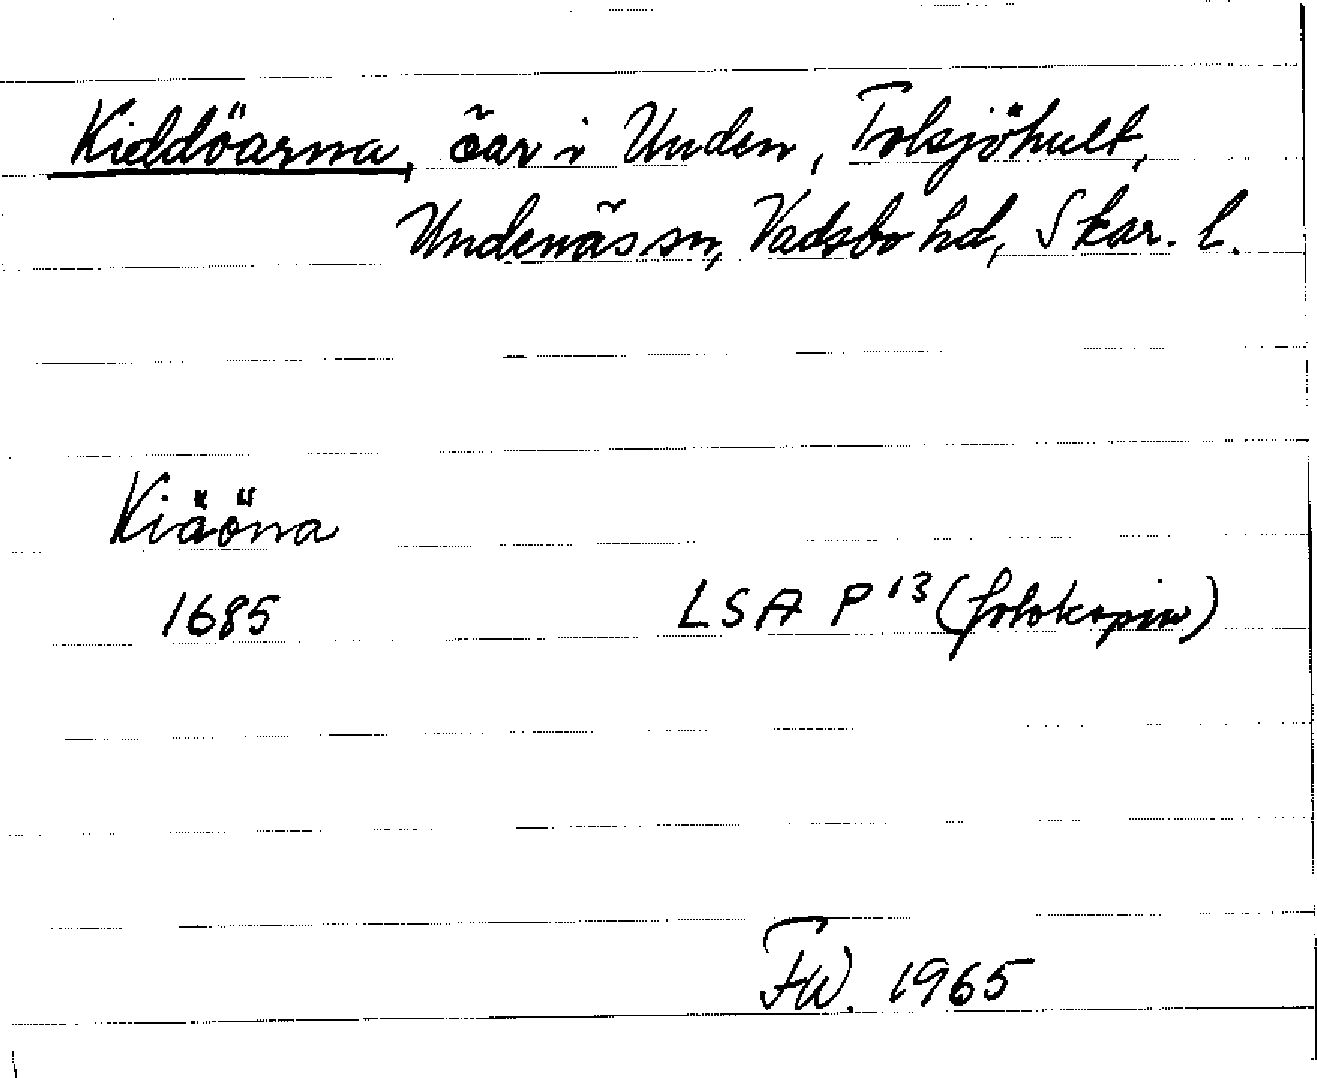 Kiddöarna, öar i Unden, Tolsjöhult,
Undenäs sn, Vadsbo hd, Skar. l.
Kiäöna
1685 LSA P 13 (fotokopia)
FW. 1965